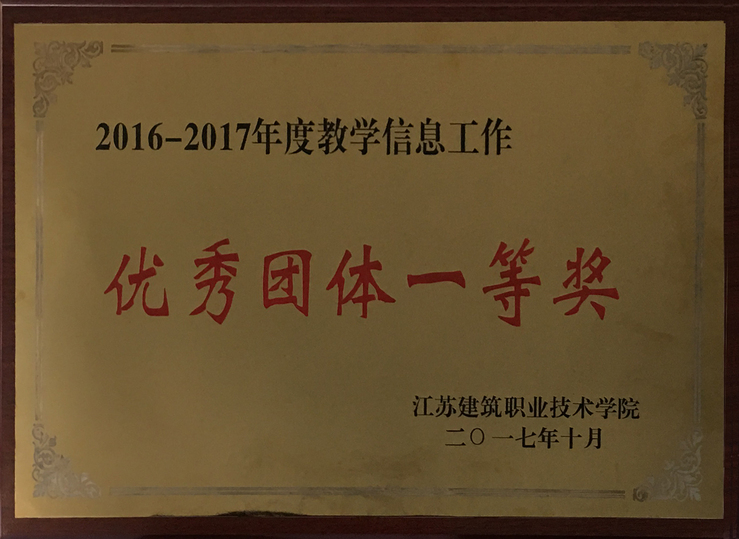 2016-2017年度教学信息工作
优秀团体一等奖
江苏建筑职业技术学院
二〇一七年十月